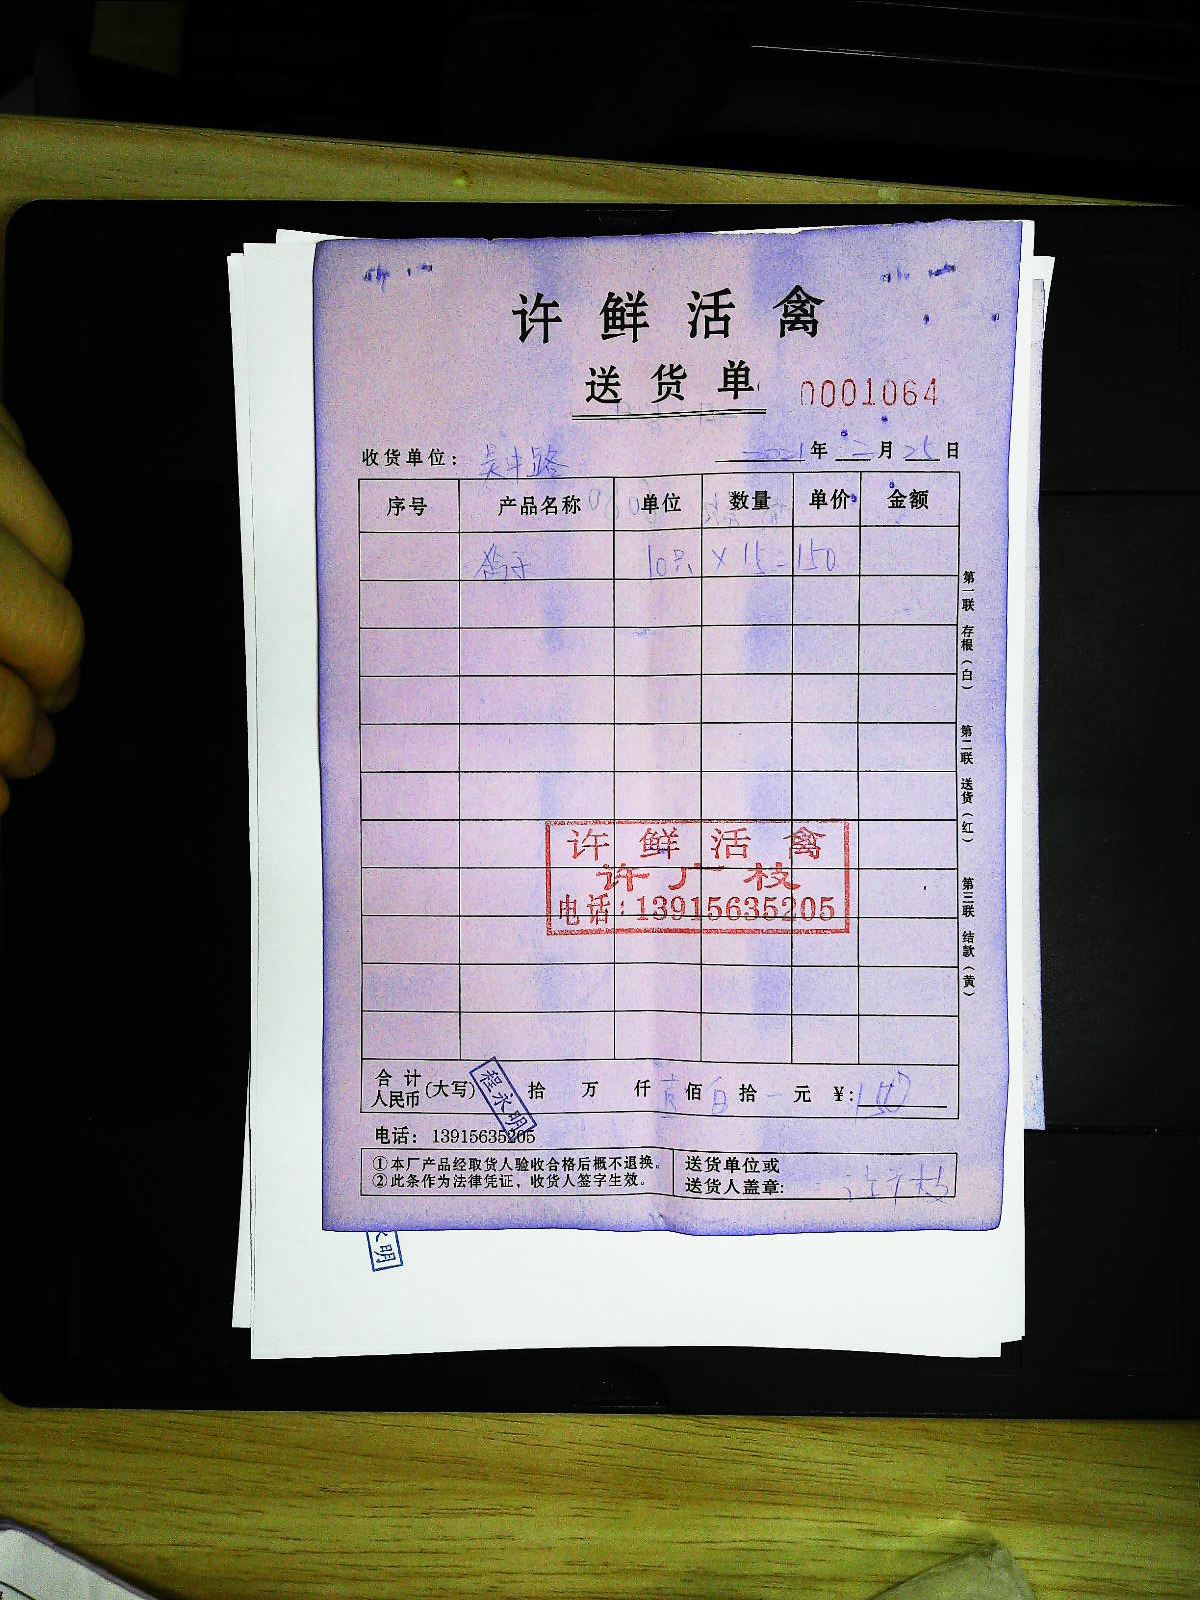 许鲜活禽
送货单
0001064
收货单位：吴中路
2021年 二月 25日
序号 产品名称 单位 数量 单价 金额
鸽子 10只 × 15=150
第一联 存根（白） 第二联 送货（红） 第三联 结款（黄）
许鲜活禽
许广枝
电话：13915635205
合计人民币(大写) 拾 万 仟 佰 拾 元 ¥:150
程永明
电话：13915635205
①本厂产品经取货人验收合格后概不退换。
②此条作为法律凭证，收货人签字生效。
送货单位或
送货人盖章: 许广枝
明